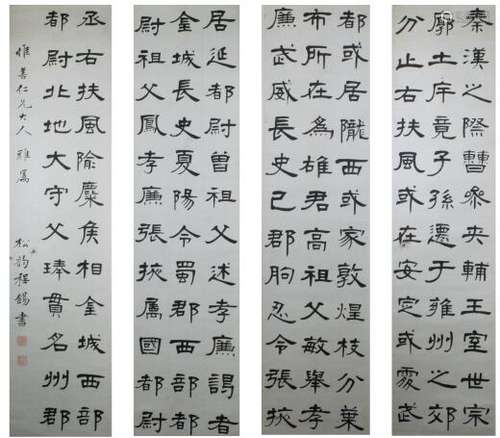 秦漢之際曹參夾輔王室世宗
廓土斥竟子孫遷于雍州之郊
分止右扶風或在安定或處武
都或居隴西或家敦煌枝分葉
布所在為雄君高祖父敏舉孝
廉武威長史巴郡朐忍令張掖
居延都尉曾祖父述孝廉謁者
金城長史夏陽令蜀郡西部都
尉祖父鳳孝廉張掖屬國都尉
丞右扶風隃麋侯相金城西部
都尉北地大守父琫貫名州郡
惟善仁兄大人雅屬
松韵程錫書